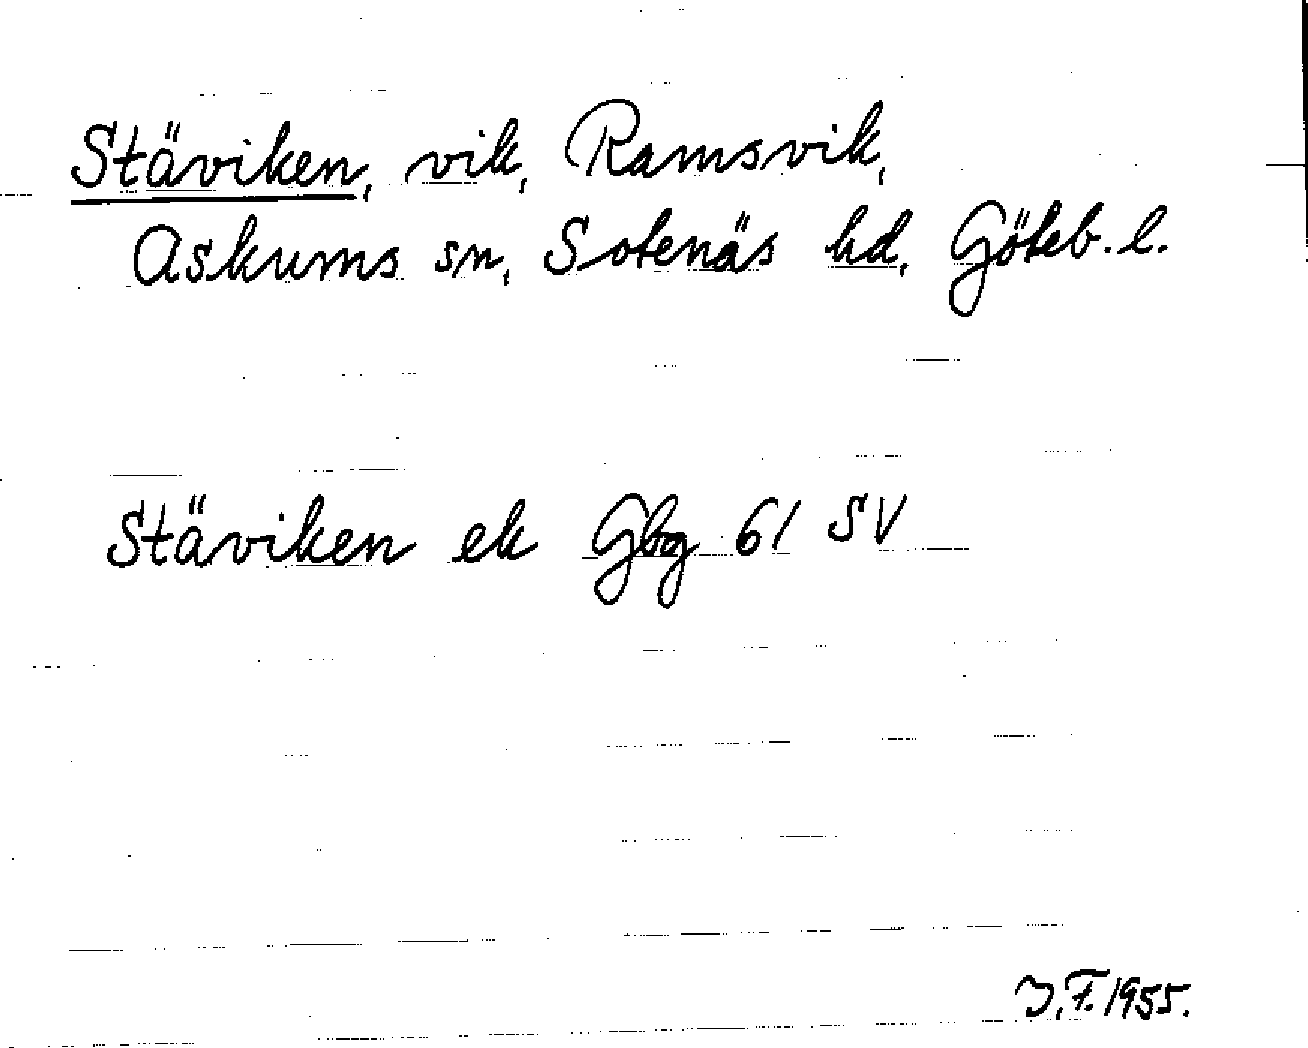 Stäviken, vik, Ramsvik,
Askums sn, Sotenäs hd, Göteb. l.
Stäviken ek Gbg 61 SV
J.F. 1955.